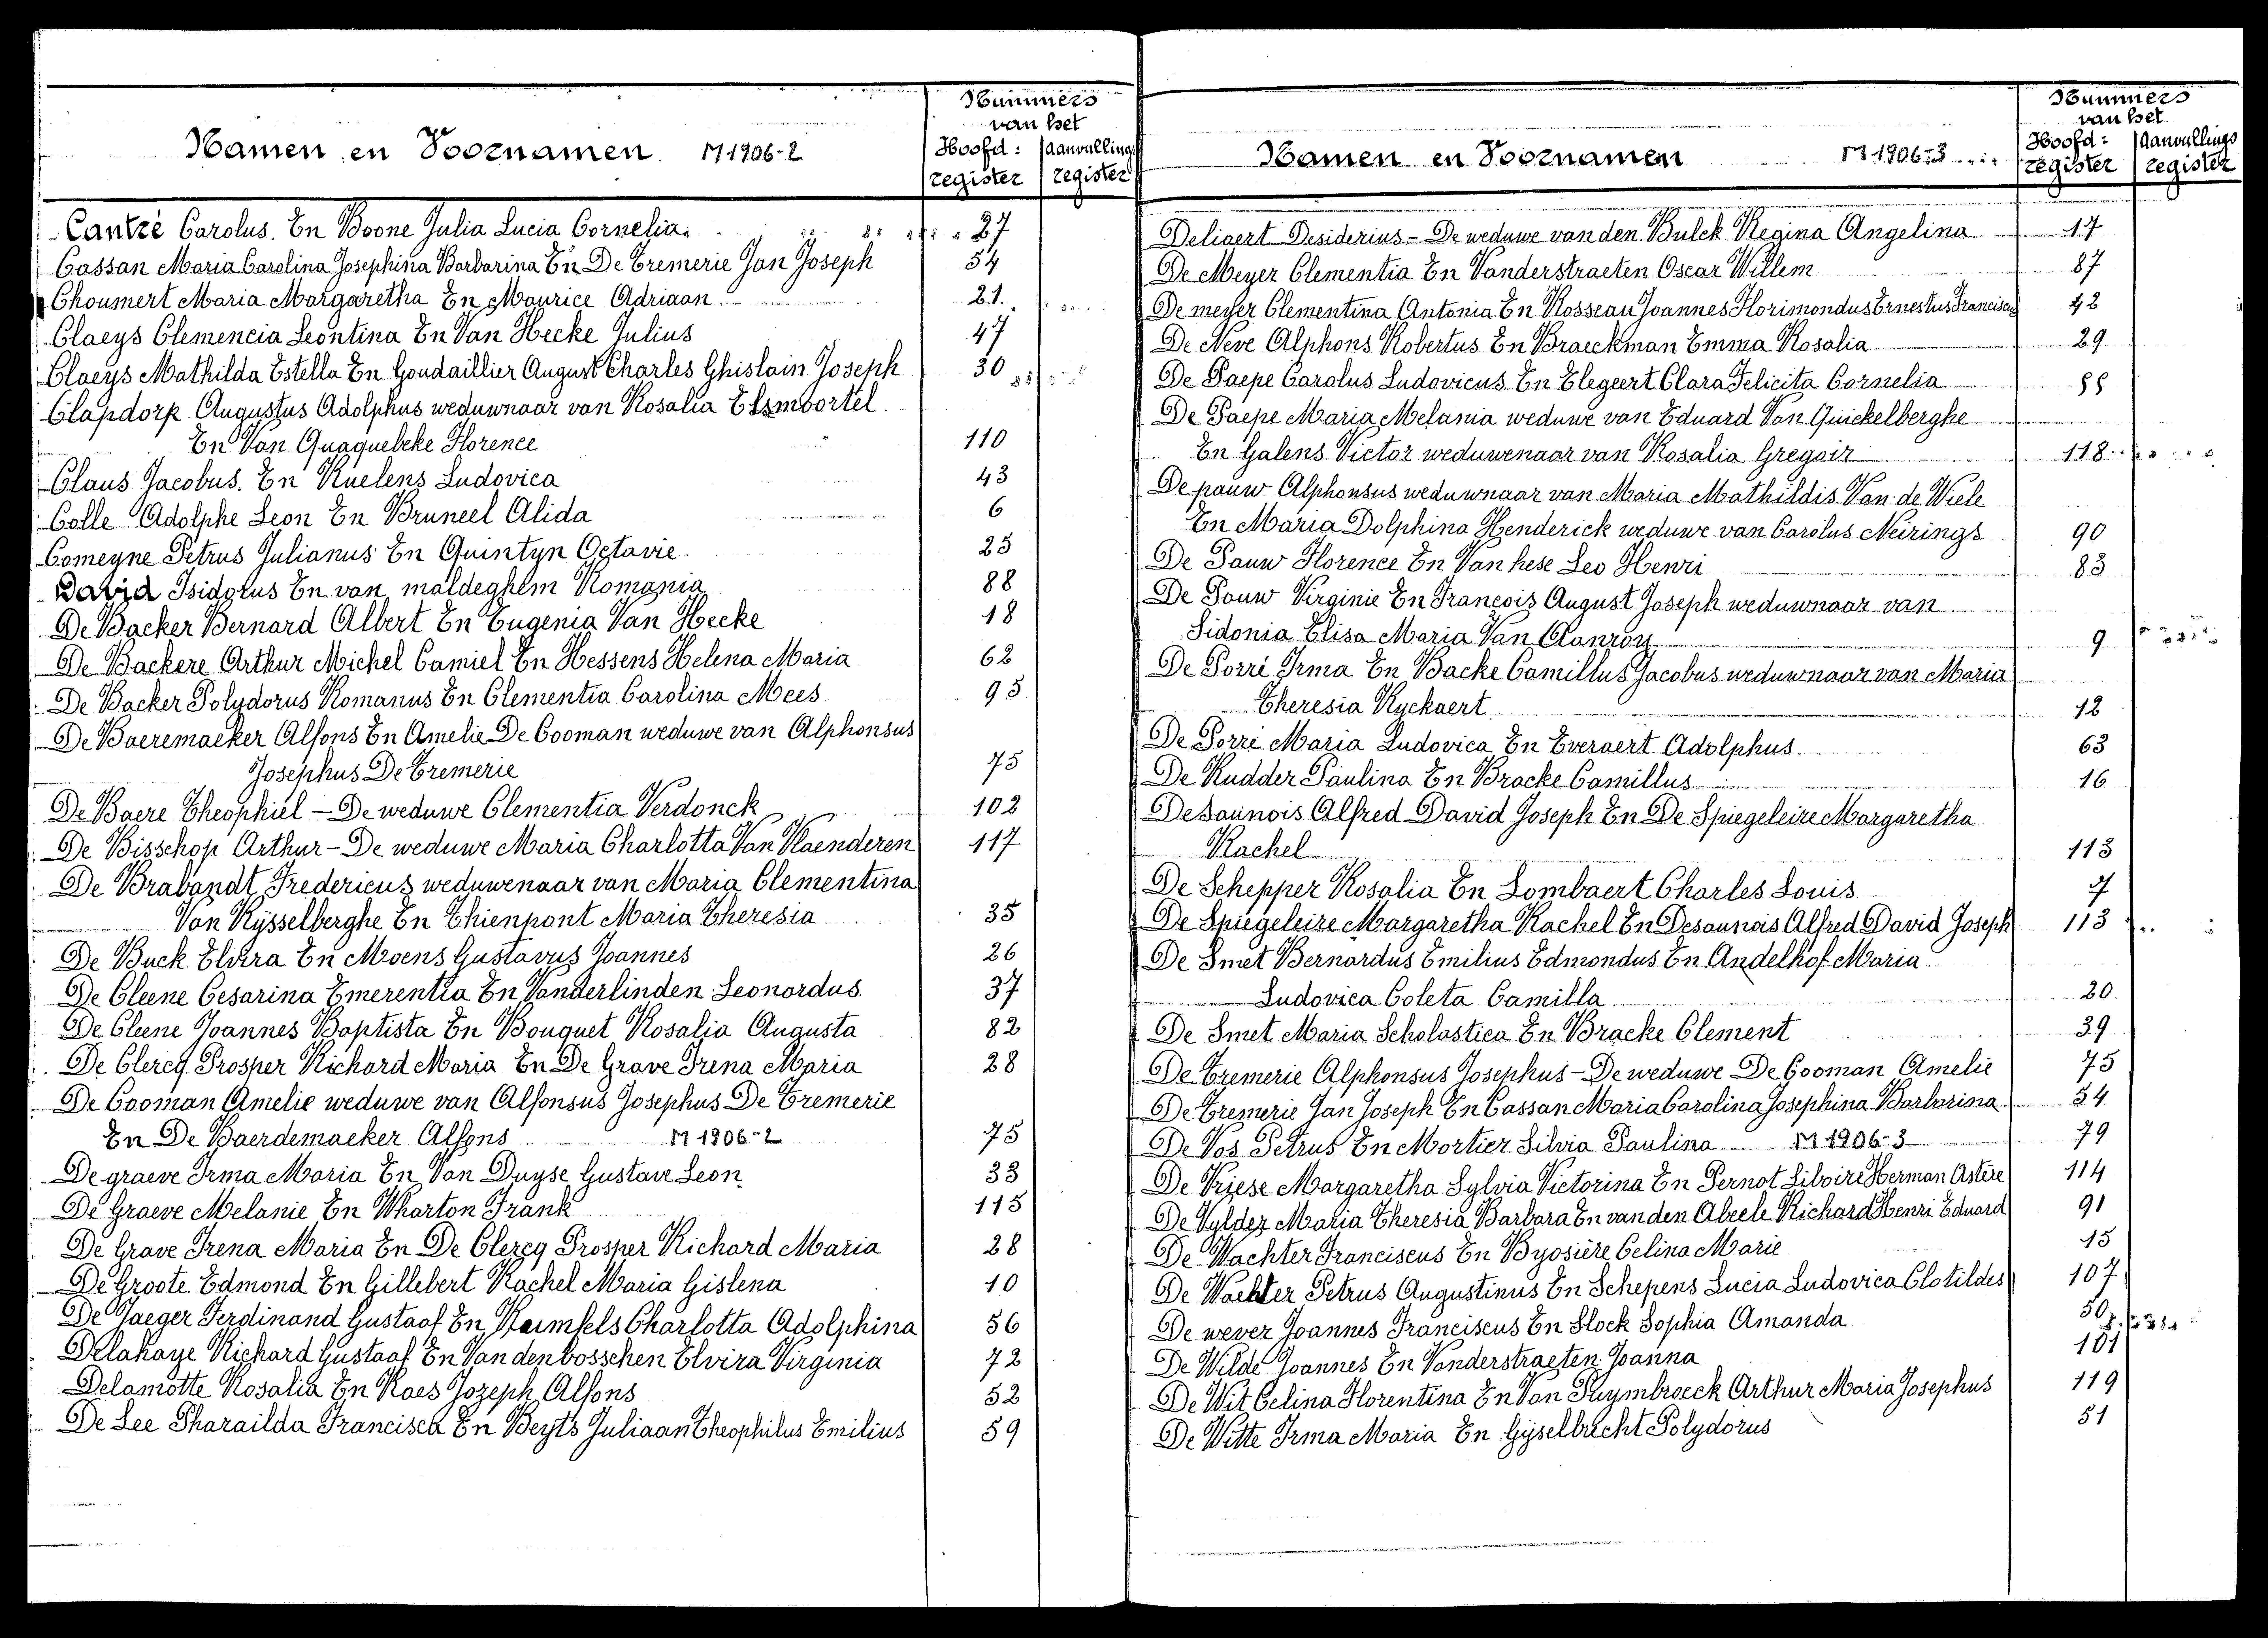 Namen en Voornamen M1906-2
Nummers
van het
Hoofd: Aanvullings
register register
Cantré Carolus. En Boone Julia Lucia Cornelia. 27
Cassan Maria Carolina Josephina Barbarina En De Tremerie Jan Joseph 54
Choumert Maria Margaretha En Maurice Adriaan 21.
Claeys Clemencia Leontina En Van Hecke Julius 47
Claeys Mathilda Estella En Goudaillier August Charles Ghislain Joseph 30
Clapdorp Augustus Adolphus weduwnaar van Rosalia Elsmoortel
En Van Quaquebeke Florence 110
Claus Jacobus. En Ruelens Ludovica 43
Colle Adolphe Leon En Bruneel Alida 6
Comeyne Petrus Julianus En Quintyn Octavie. 25
David Isidorus En van maldeghem Romania 88
De Backer Bernard Albert En Eugenia Van Hecke 18
De Backere Arthur Michel Camiel En Hessens Helena Maria 62
De Backer Polydorus Romanus En Clementia Carolina Mees 95
De Baeremaeker Alfons En Amelie De Cooman weduwe van Alphonsus
Josephus De Tremerie 75
De Baere Theophiel - De weduwe Clementia Verdonck 102
De Bisschop Arthur - De weduwe Maria Charlotta Van Vlaenderen 117
De Brabandt Fredericus weduwenaar van Maria Clementina
Van Rysselberghe En Thienpont Maria Theresia 35
De Buck Elvira En Moens Gustavus Joannes 26
De Cleene Cesarina Emerentia En Vanderlinden Leonardus 37
De Cleene Joannes Baptista En Bouquet Rosalia Augusta 82
De Clercq Prosper Richard Maria En De Grave Irena Maria 28
De Cooman Amelie weduwe van Alfonsus Josephus De Tremerie
En De Baerdemaeker Alfons M1906-2 75
De graeve Irma Maria En Van Duyse Gustave Leon 33
De Graeve Melanie En Wharton Frank 115
De Grave Irena Maria En De Clercq Prosper Richard Maria 28
De Groote Edmond En Gillebert Rachel Maria Gislena 10
De Jaeger Ferdinand Gustaaf En Charlotta Adolphina 56
Delahaye Richard Gustaaf En Van den bosschen Elvira Virginia 72
Delamotte Rosalia En Raes Jozeph Alfons 52
De Lee Pharailda Francisca En Beyts Juliaan Theophilus Emilius 59
Namen en Voornamen M1906-3
Nummers
van het
Hoofd: Aanvullings
register register
Deliaert Desiderius - De weduwe van den Bulck Regina Angelina 17
De Meyer Clementia En Vanderstraeten Oscar Willem 87
De meyer Clementina Antonia En Rosseau Joannes Florimondus Ernestus Franciscus 42
De Neve Alphons Robertus En Braeckman Emma Rosalia 29
De Paepe Carolus Ludovicus En Elegeert Clara Felicita Cornelia
De Paepe Maria Melania weduwe van Eduard Van Quickelberghe
En Galens Victor weduwenaar van Rosalia Gregoir 118
De pauw Alphonsus weduwnaar van Maria Mathildis Van de Wiele
En Maria Dolphina Henderick weduwe van Carolus Neirings 90
De Pauw Florence En Van hese Leo Henri 83
De Pauw Virginie En François August Joseph weduwnaar van
Sidonia Elisa Maria Van 9
De Porré Irma En Backe Camillus Jacobus weduwnaar van Maria
Theresia Ryckaert 12
De Porre Maria Ludovica En Everaert Adolphus 63
De Rudder Paulina En Bracke Camillus 16
Desaunois Alfred David Joseph En De Spiegeleire Margaretha
Rachel 113
De Schepper Rosalia En Lombaert Charles Louis 7
De Spiegeleire Margaretha Rachel En Desaunois Alfred David Joseph 113
De Smet Bernardus Emilius Edmondus En Andelhof Maria
Ludovica Coleta Camilla 20
De Smet Maria Scholastica En Bracke Clement 39
De Tremerie Alphonsus Josephus - De weduwe De Cooman Amelie 75
De Tremerie Jan Joseph En Cassan Maria Carolina Josephina Barbarina 54
De Vos Petrus En Mortier Silvia Paulina M1906-3 79
De Vriese Margaretha Sylvia Victorina En Pernot Silvoire Herman Astère 114
De Vylder Maria Theresia Barbara En van den Abeele Richard Henri Eduard 91
De Wachter Franciscus En Byosière Celina Marie 15
De Wachter Petrus Augustinus En Schepens Lucia Ludovica Clotildes 107
De wever Joannes Franciscus En Slock Sophia Amanda 50
De Wilde Joannes En Vanderstraeten Joanna 101
De Wit Celina Florentina En Van Puymbroeck Arthur Maria Josephus 119
De Witte Irma Maria En Gyselbrecht Polydorus 51